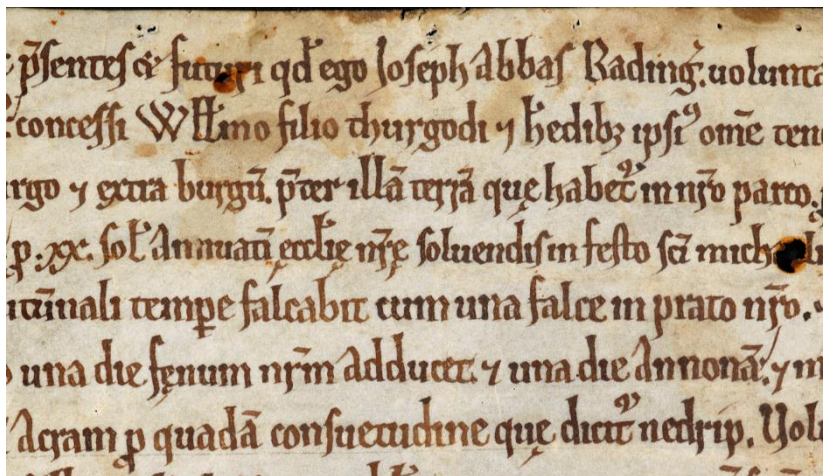 p̄sentes & futuri qđ ego Joseph Abbas Rading̃. uolunta
concessi Wiłłmo filio thurgodi ⁊ h̄edibꝫ ipsiꝰ om̄e ten
rgo ⁊ extra burgū. p̄ter illā terrā quę habet᷑ in nr̄o parco.
ꝑ .xx. sol̄ Annuatī ęccłię nr̄ę soluendis in festo sc̄i micha
tūnali temꝑe falcabit cum una falce in prato nr̄o.
una die fęnum nr̄m Adducet. ⁊ una die Annonā. ⁊ m
Acram ꝑ quadā consuetudine quę dicit᷑ nedrip. Uolu